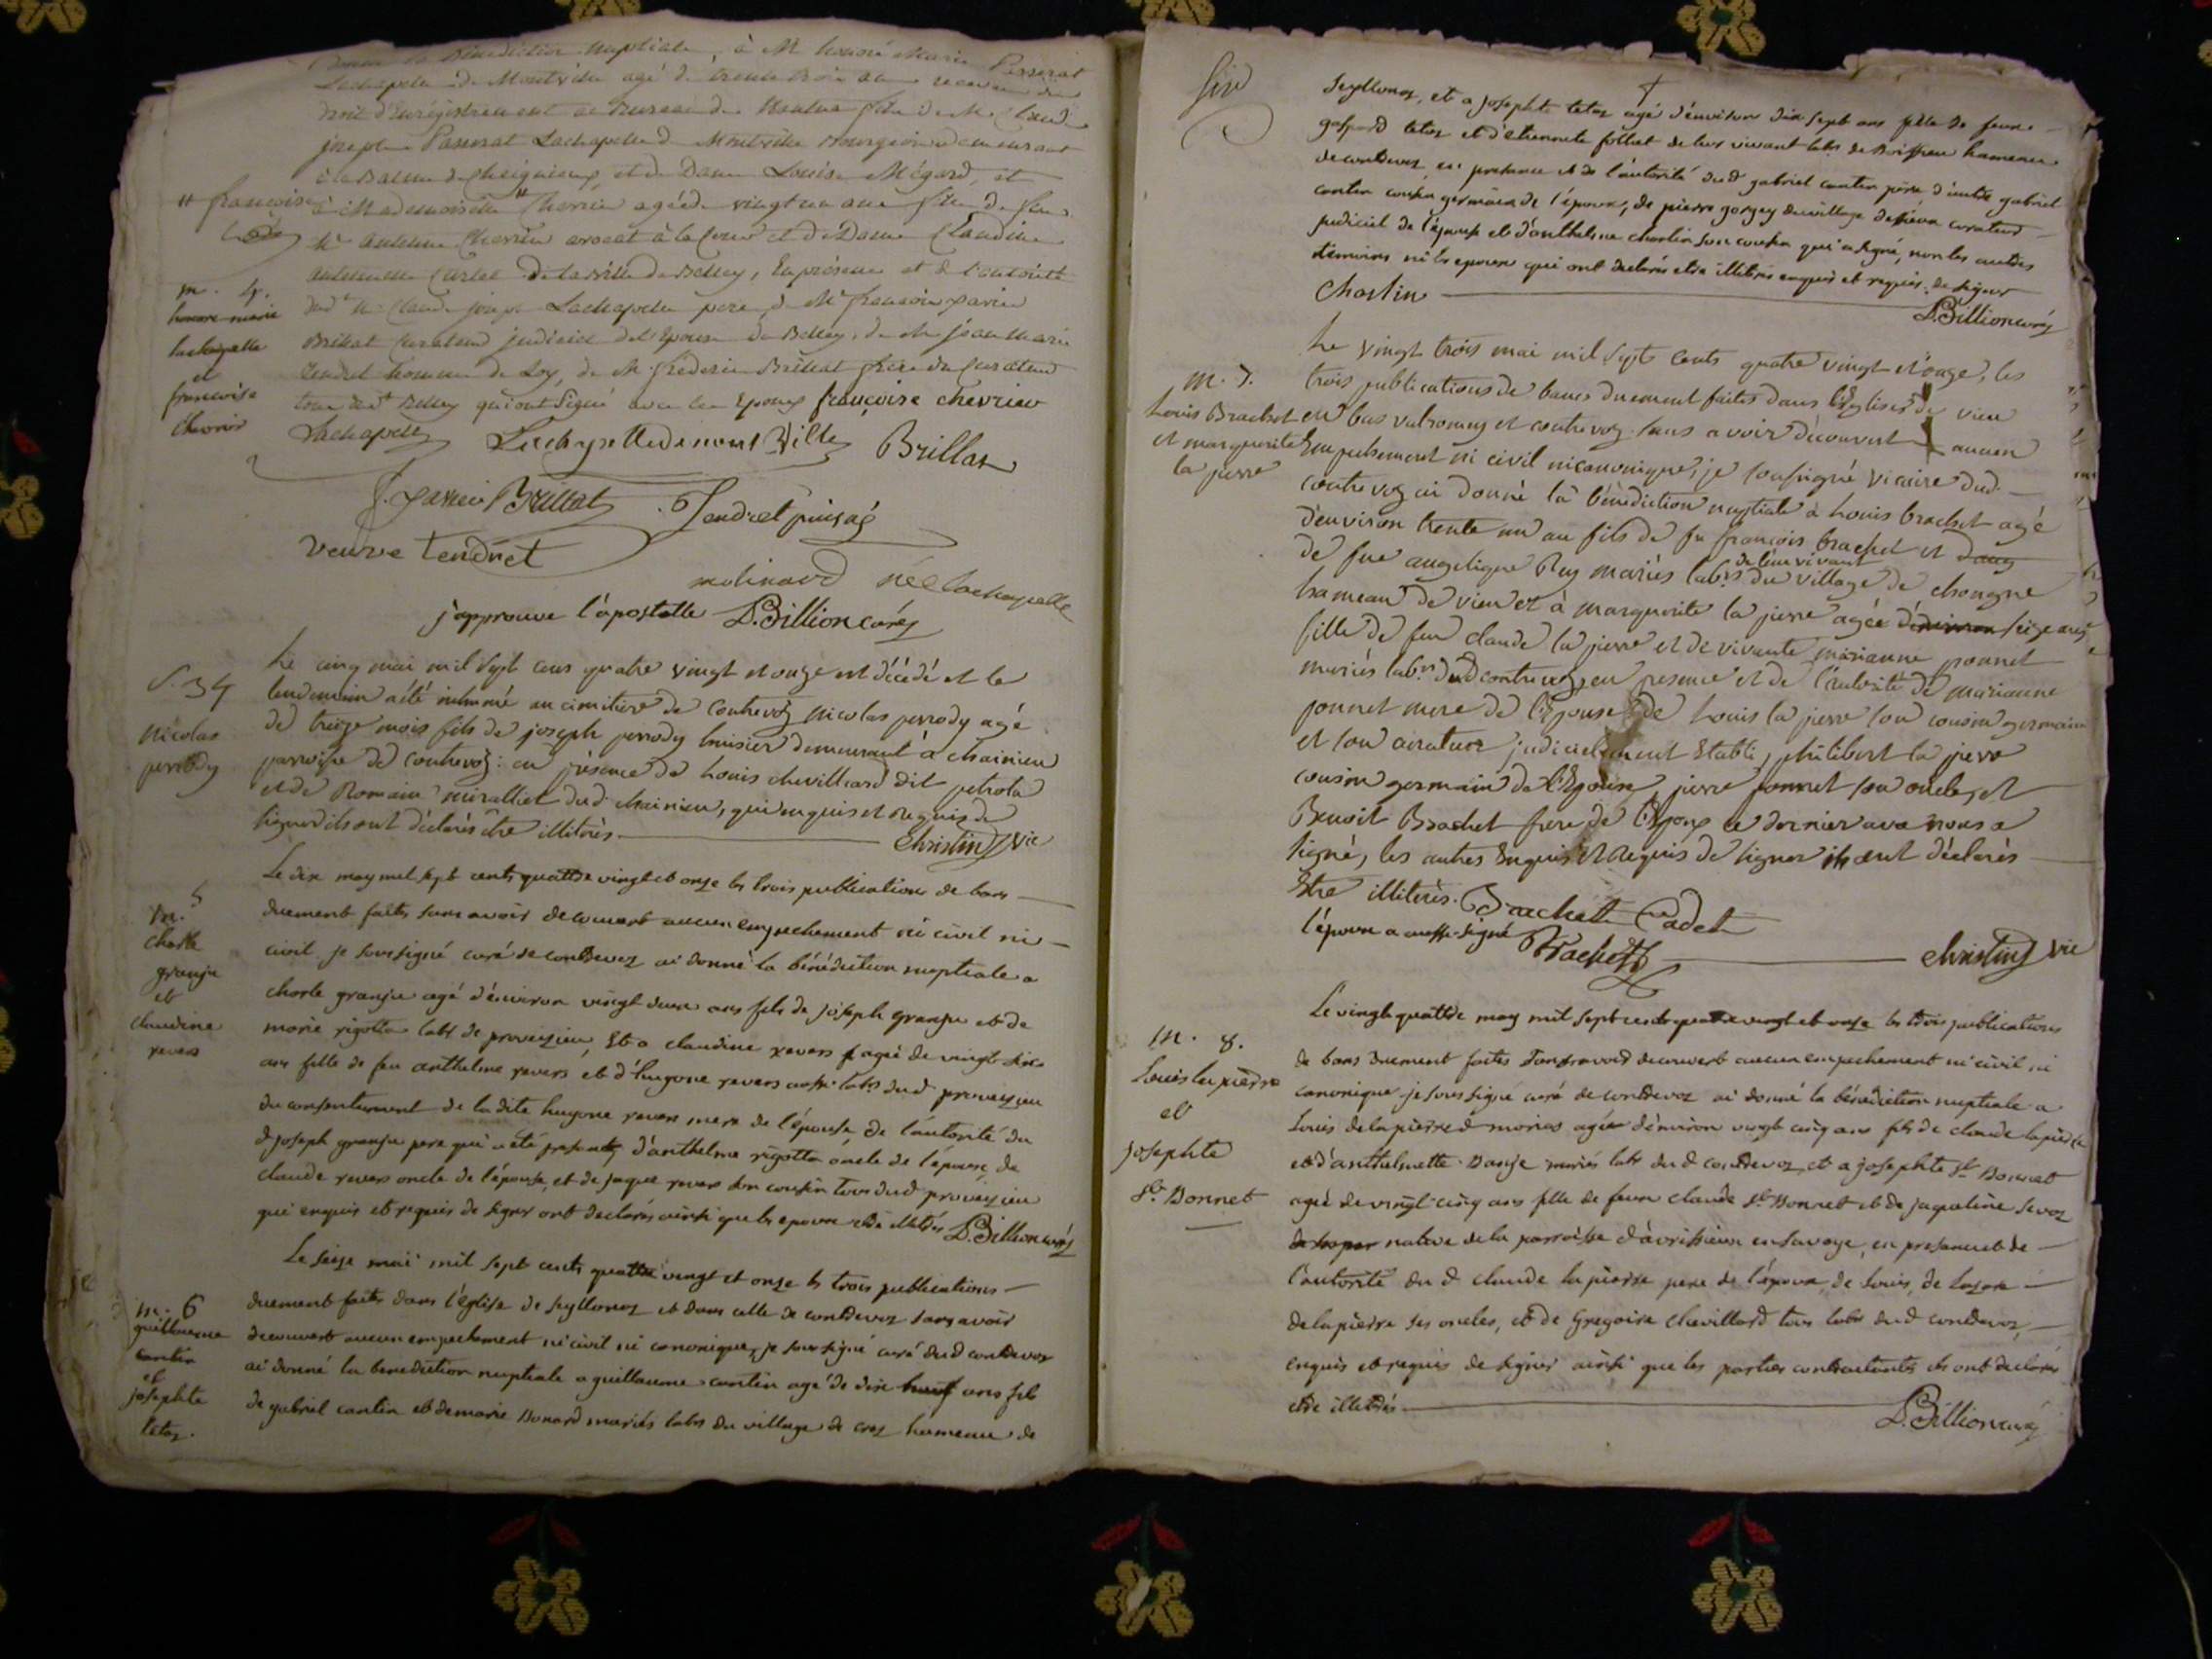 Donné la Bénédiction nuptiale, à Mr honoré Marie Passerat
Lachapelle de Montville agé de trente trois ans receveur du
droit d'Enregistrement au Bureau de fils de Mr Claude
joseph Passerat Lachapelle de Montville Bourgeois demeurant
à la Balme de et de Dame Louise Mégard, et
" françoise
à Mademoiselle " Chevrier agée de vingt un ans fille de feu
Mr antelme Chevrier avocat à la Cour et de Dame Claudine
antoinette de la ville de Belley, En présence et de l'autorité
dud Mr Claude joseph Lachapelle pere, de Mr françois xavier
m. 4.
honoré marie
lachapelle
et
françoise
chevrier
Brillat Curateur judiciel de l'Epouse de Belley, de Mr jean Marie
Tendret homme de Loy, de Mr fréderic Brillat frère du Curateur
tous dud Belley qui ont signé avec les Epoux françoise chevrier
Lachapelle Lachapelle de mont Ville Brillat
f. xavier Brillat Tendret puisné
veuve Tendret
molinard née lachapelle
j'approuve l'apostille D. Billion curé
S. 34
nicolas
perrody
Le cinq mai mil sept cens quatre vingt et onze est décédé et le
lendemain a été inhumé au cimitière de Contrevoz nicolas perrody agé
de treize mois fils de joseph perrody huisier demeurant à chainieu
parroisse de Contrevoz: en présence de Louis chevilliard dit petrola
et de Romain miralliet dud chainieu, qui enquis et Requis de
signer ils ont déclarés être illitérés. Christin Vic
m. 5
charle
granju
et
claudine
revers
Le dix may mil sept cents quattre vingt et onze les trois publications de bans
duement faites sans avoir decouvert aucun empechement ni civil ni
civil je soussigné curé de contrevoz ai donné la bénédiction nuptiale a
charle granju agé d'environ vingt deux ans fils de joseph granju et de
marie rigottin labs de proveysieu, et a claudine revers agée de vingt six
ans fille de feu anthelme revers et d'hugone revers aussi labs dud proveysieu
du consentement de la dite hugone revers mere de l'épouse, de l'autorité du
d joseph granju pere qui a été présent, d'anthelme rigottin oncle de l'époux, de
claude revers oncle de l'épouse, et de jaque revers son cousin tous dud proveysieu
qui enquis et requis de signer ont declarés ainsi que les epoux etre illetrés D. Billion curé
m. 6
guillaume
cantin
et
josephte
tetaz.
Le seize mai mil sept cents quattre vingt et onze les trois publications
duement faites dans l'église de seyllonaz et dans celle de contrevoz sans avoir
decouvert aucun empechement ni civil ni canonique, je soussigné curé dud contrevoz
ai donné la benediction nuptiale a guillaume cantin agé de dix neuf ans fils
de gabriel cantin et de marie Bonard mariés labs du village de crez hameau de
seyllonaz, et a josephte tetaz agé d'environ dix sept ans fille de feux
gaspard tetaz et d'etiennete folliet de leur vivant labs de Boissieu hameau
de contrevoz, en presence et de l'autorité dud gabriel cantin père d'autre gabriel
cantin cousin germain de l'époux, de pierre gorgey du village curateur
judiciel de l'épouse et d'anthelme charlin son cousin qui a signé, non les autres
témoins ni les epoux qui ont declarés etre illitérés enquis et requis de signer
Charlin D. Billion curé
m. 7.
Louis Brachet
et marguerite
la pierre
Le vingt trois mai mil sept cents quatre vingt et onze, les
trois publications de bancs duement faites dans les Eglises de vieu
en bas valromey et contrevoz sans avoir découvert aucun
Empechement ni civil ni canonique, je soussigné vicaire dud
contrevoz ai donné la bénédiction nuptiale à Louis brachet agé
d'environ trente un an fils de fu françois brachet et
de fue angelique Rey mariés labrs de leur vivant du village de chongne
hameau de vieu et à marguerite la pierre agée seize ans
fille de feu claude la pierre et de vivante marianne ponnet
mariés labrs dud contrevoz, en presence et de l'autorité de marianne
ponnet mere de l'Epouse, de Louis la pierre son cousin germain
et son curateur judiciellement Etabli, philibert la pierre
cousin germain de l'Epouse, pierre ponnet son oncle, et
Benoit Brachet frere de l'Epoux ce dernier avec nous a
signé, les autres Enquis et Requis de signer ils ont déclarés
Etre illitérés. Brachet Cadet
l'époux a aussi signé Brachet Christin Vic
m. 8.
Louis lapierre
et
josephte
St Bonnet
Le vingt quattre may mil sept cents quatre vingt et onze les trois publications
de bans duement faites sans avoir decouvert aucun empechement ni civil ni
canonique je soussigné curé de contrevoz ai donné la bénédiction nuptiale a
Louis delapierre d agé d'environ vingt cinq ans fils de claude lapierre
et d'anthelmette Dange mariés labs dud contrevoz, et a josephte St Bonnet
agée de vingt cinq ans fille de feux claude St Bonnet et de jaqueline
native de la parroisse d'avrissieux en savoye, en presence et de
l'autorité du d claude lapierre pere de l'époux, de Louis, de Lazare
delapierre ses oncles, et de Gregoire chevillard tous labs dud contrevoz,
enquis et requis de signer ainsi que les parties contractantes ils ont declarés
etre illetrés D. Billion curé